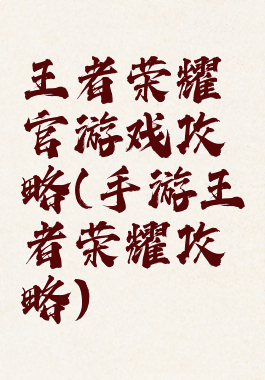 王者荣耀
官游戏攻
略(手游王
者荣耀攻
略)